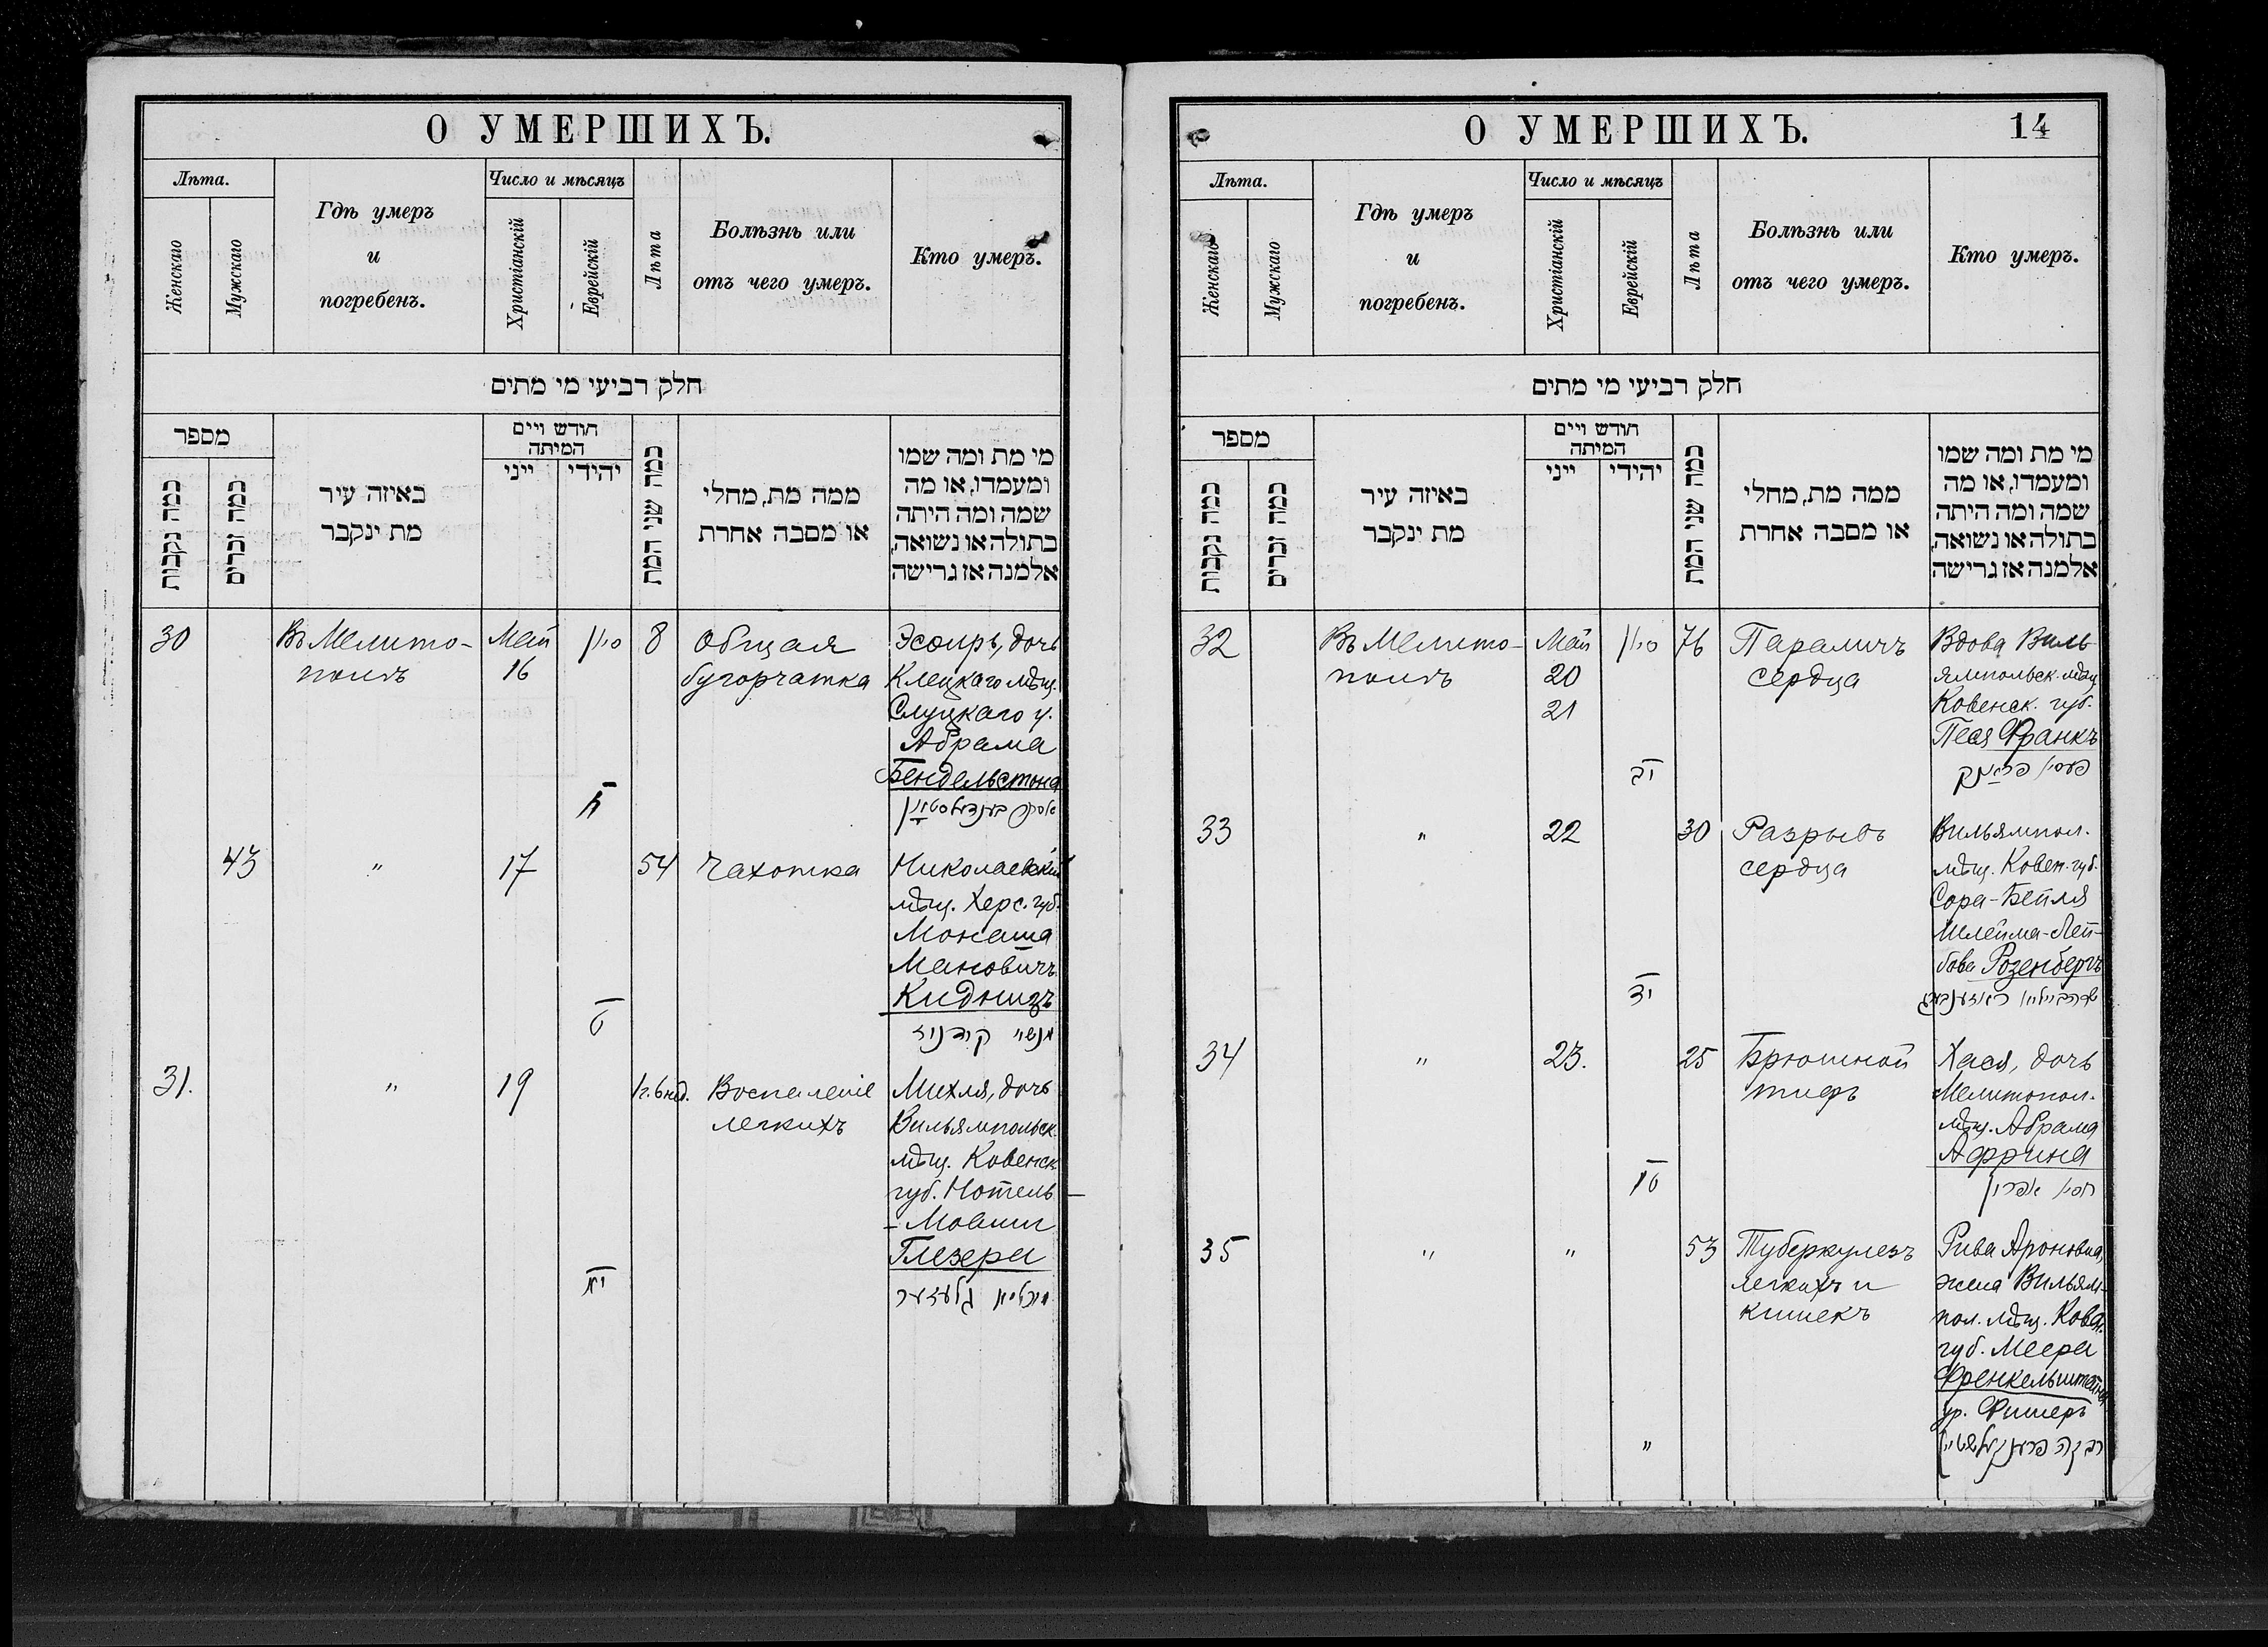 О УМЕРШИХЪ.
Лѣта.
Женскаго
Мужскаго
Гдѣ умеръ
и
погребенъ.
Число и мѣсяцъ
Христіанскій
Еврейскій
Лѣта
Болѣзнь или
отъ чего умеръ.
Кто умеръ.
חלק רביעי מי מתים
מספר
כמה נקבות
כמה זכרים
באיזה עיר
מת ינקבר
חודש ויום
המיתה
ייני
יהידי
כמה שני המת
ממה מת, מחלי
או מסבה אחרת
מי מת ומה שמו
ומעמדו, או מה
שמה ומה היתה
בתולה או נשואה,
אלמנה אז גרישה
30
Въ Мелито-
полѣ
Май
16
סיון
ח
8
Общая
бугорчатка
Эсѳирь, дочь
Клецкаго мѣщ.
Слуцкаго у.
Абрама
Бендельстона
43
"
17
ט
54
Чахотка
Николаевскій
мѣщ. Херс. губ.
Монаша
Мановичъ
Кидницъ
מנשי קידניץ
31.
"
19
יא
1г. 6 нед.
Воспаленіе
легкихъ
Михля, дочь
Вильямпольск.
мѣщ. Ковенск.
губ. Нотель-
- Мовши
Глезера
מיכליא גלעזער
О УМЕРШИХЪ.
14
Лѣта.
Женскаго
Мужскаго
Гдѣ умеръ
и
погребенъ.
Число и мѣсяцъ
Христіанскій
Еврейскій
Лѣта
Болѣзнь или
отъ чего умеръ.
Кто умеръ.
חלק רביעי מי מתים
מספר
כמה נקבות
כמה זכרים
באיזה עיר
מת ינקבר
חודש ויום
המיתה
ייני
יהידי
כמה שני המת
ממה מת, מחלי
או מסבה אחרת
מי מת ומה שמו
ומעמדו, או מה
שמה ומה היתה
בתולה או נשואה,
אלמנה אז גרישה
32
Въ Мелито-
полѣ
Май
20
21
סיון
יג
76
Параличъ
сердца
Вдова Виль-
ямпольск. мѣщ.
Ковенск. губ.
Песя Франкъ
פעסיא פראנק
33
"
22
יד
30
Разрывъ
сердца
Вильямпол.
мѣщ. Ковен. губ.
Сора-Бейля
Шлейма-Лей-
бова Розенбергъ
שרה בייליא ראזענבערג
34
"
23.
טו
25
Брюшной
тифъ
Хася, дочь
Мелитопол.
мѣщ. Абрама
Африна
חסיא אפרין
35
"
"
"
53
Туберкулезъ
легкихъ и
кишекъ
Рива Ароновна,
жена Вильям-
пол. мѣщ. Ковен.
губ. Меера
Френкельштейна
ур. Фишеръ
רבקה פרענקעלשטיין